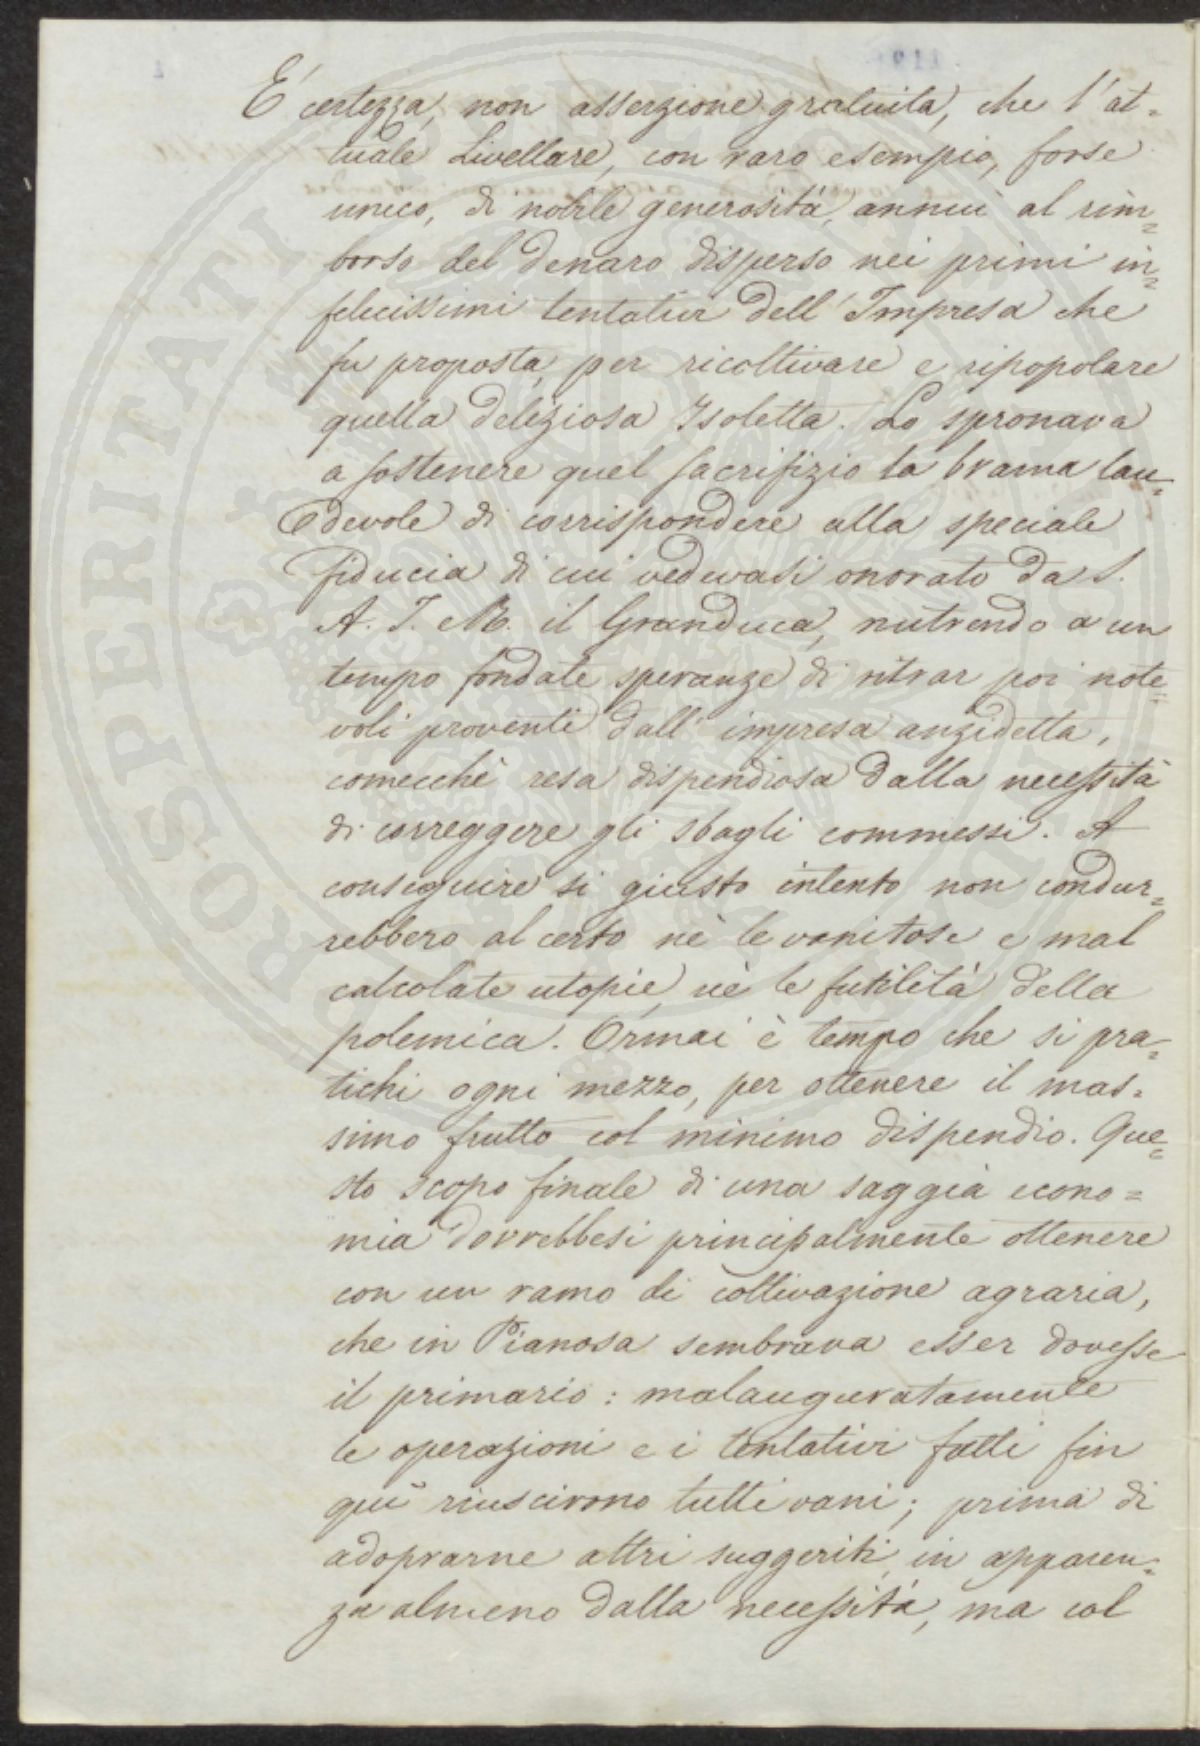 E' certezza, non asserzione gratuita, che l'at-
tuale Livellare, con raro esempio, forse
unico, di nobile generosità, annui al rim=
borso del denaro disperso nei primi in=
felicissimi tentativi dell'Impresa che
fu proposta per ricoltivare e ripopolare
quella deliziosa Isoletta. Lo spronava
a sostenere quel sacrifizio la brama lau=
devole di corrispondere alla speciale
fiducia di cui vedevasi onorato da S.
A. I. R. il Granduca, nutrendo a un
tempo fondate speranze di ritrar poi note=
voli proventi dall'impresa anzidetta,
comecchè resa dispendiosa dalla necessità
di correggere gli sbagli commessi. A
conseguire sì giusto intento non condur=
rebbero al certo nè le vanitose e mal
calcolate utopie, nè le futilità della
polemica. Ormai è tempo che si pra=
tichi ogni mezzo, per ottenere il mas-
simo frutto col minimo dispendio. Que=
sto scopo finale di una saggia econo=
mia dovrebbesi principalmente ottenere
con un ramo di coltivazione agraria,
che in Pianosa sembrava esser dovesse
il primario: malauguratamente
le operazioni e i tentativi fatti fin
quì riuscirono tutti vani; prima di
adoprarne altri suggeriti, in apparen=
za almeno dalla necessità, ma col
PROSPERITATI PUBLICAE